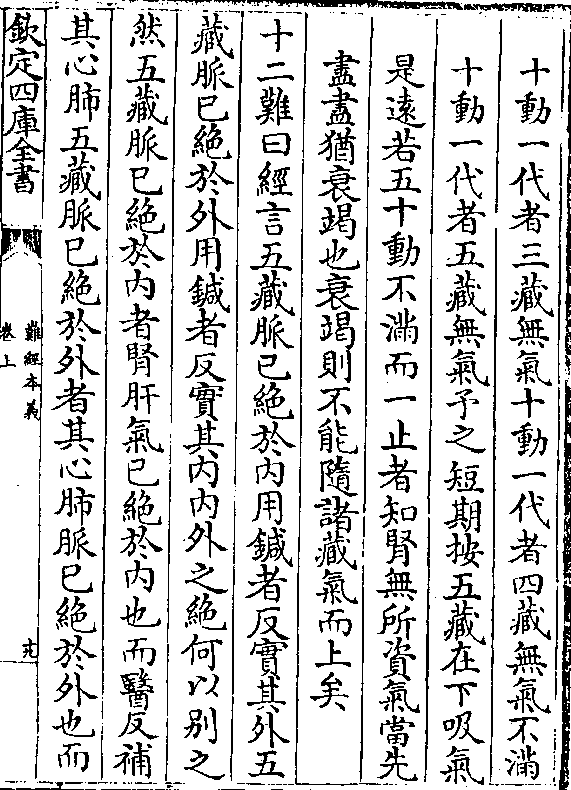 十動一代者三藏無氣十動一代者四藏無氣不滿
十動一代者五藏無氣予之短期按五藏在下吸氣
是遠若五十動不滿而一止者知腎無所資氣當先
盡盡猶衰竭也衰竭則不能隨諸藏氣而上矣
十二難曰經言五藏脈已絕於內用鍼者反實其外五
藏脈已絕於外用鍼者反實其內內外之絕何以别之
然五藏脈已絕於內者腎肝氣已絕於內也而醫反補
其心肺五藏脈已絕於外者其心肺脈已絕於外也而
欽定四庫全書
難經本義
卷上